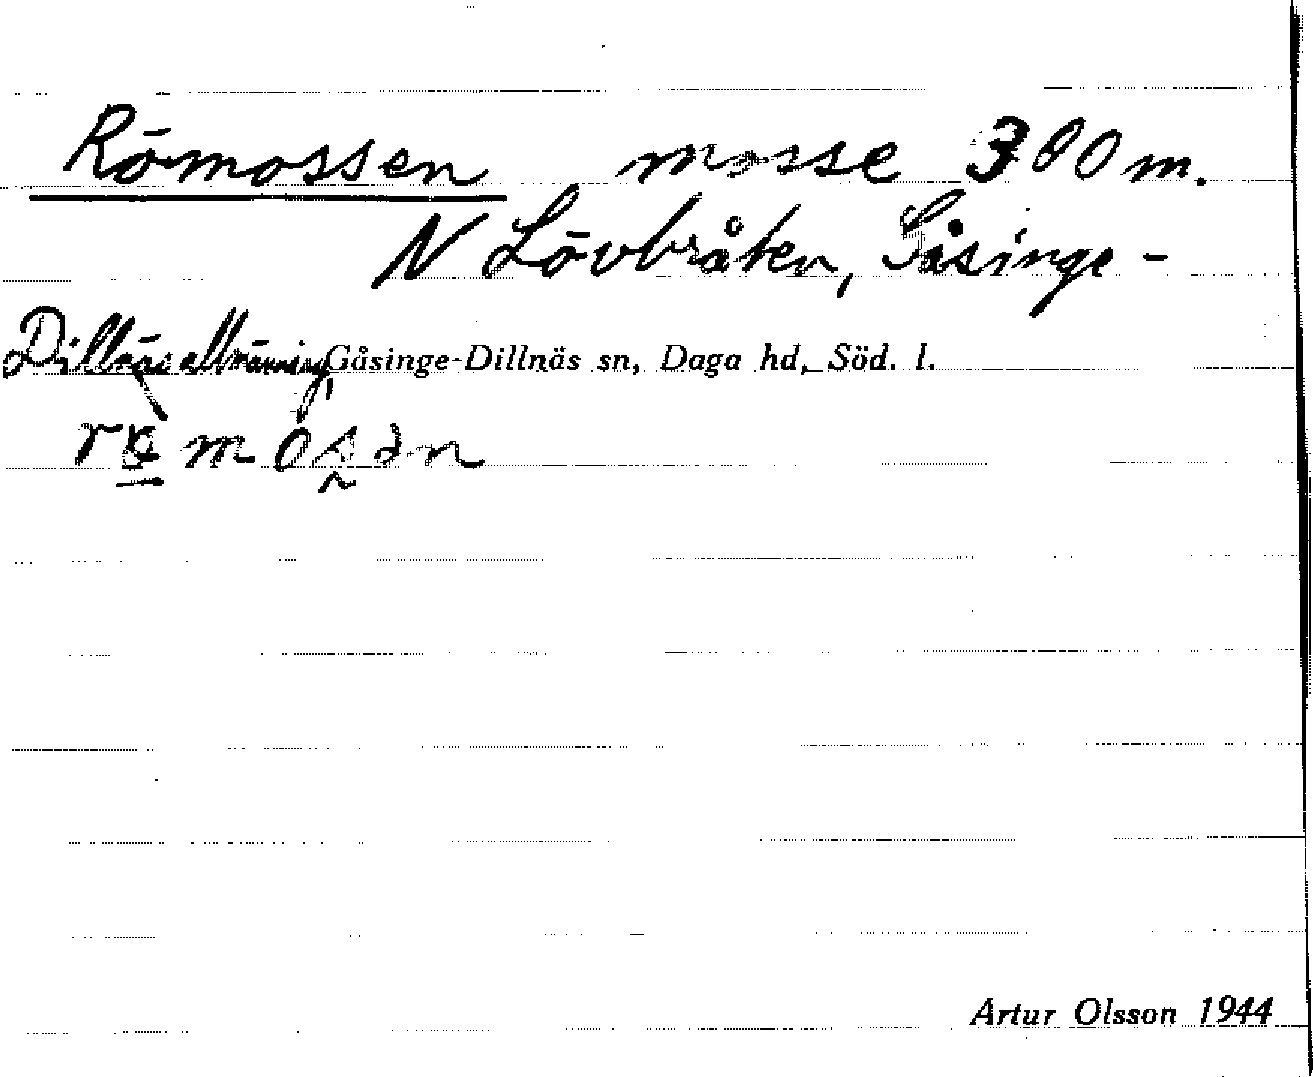 Römossen mosse 300 m.
N Lövbråten, Gåsinge-
Dillnäs allmänning,
Gåsinge-Dillnäs sn, Daga hd, Söd. l.
Artur Olsson 1944